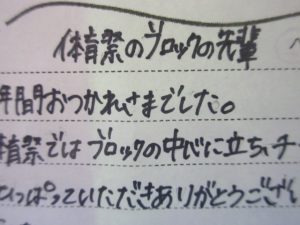 体育祭のブロックの先輩
年間おつかれさまでした。
体育祭では ブロックの中心に立ち、チー
ひっぱっていただきありがとうござい